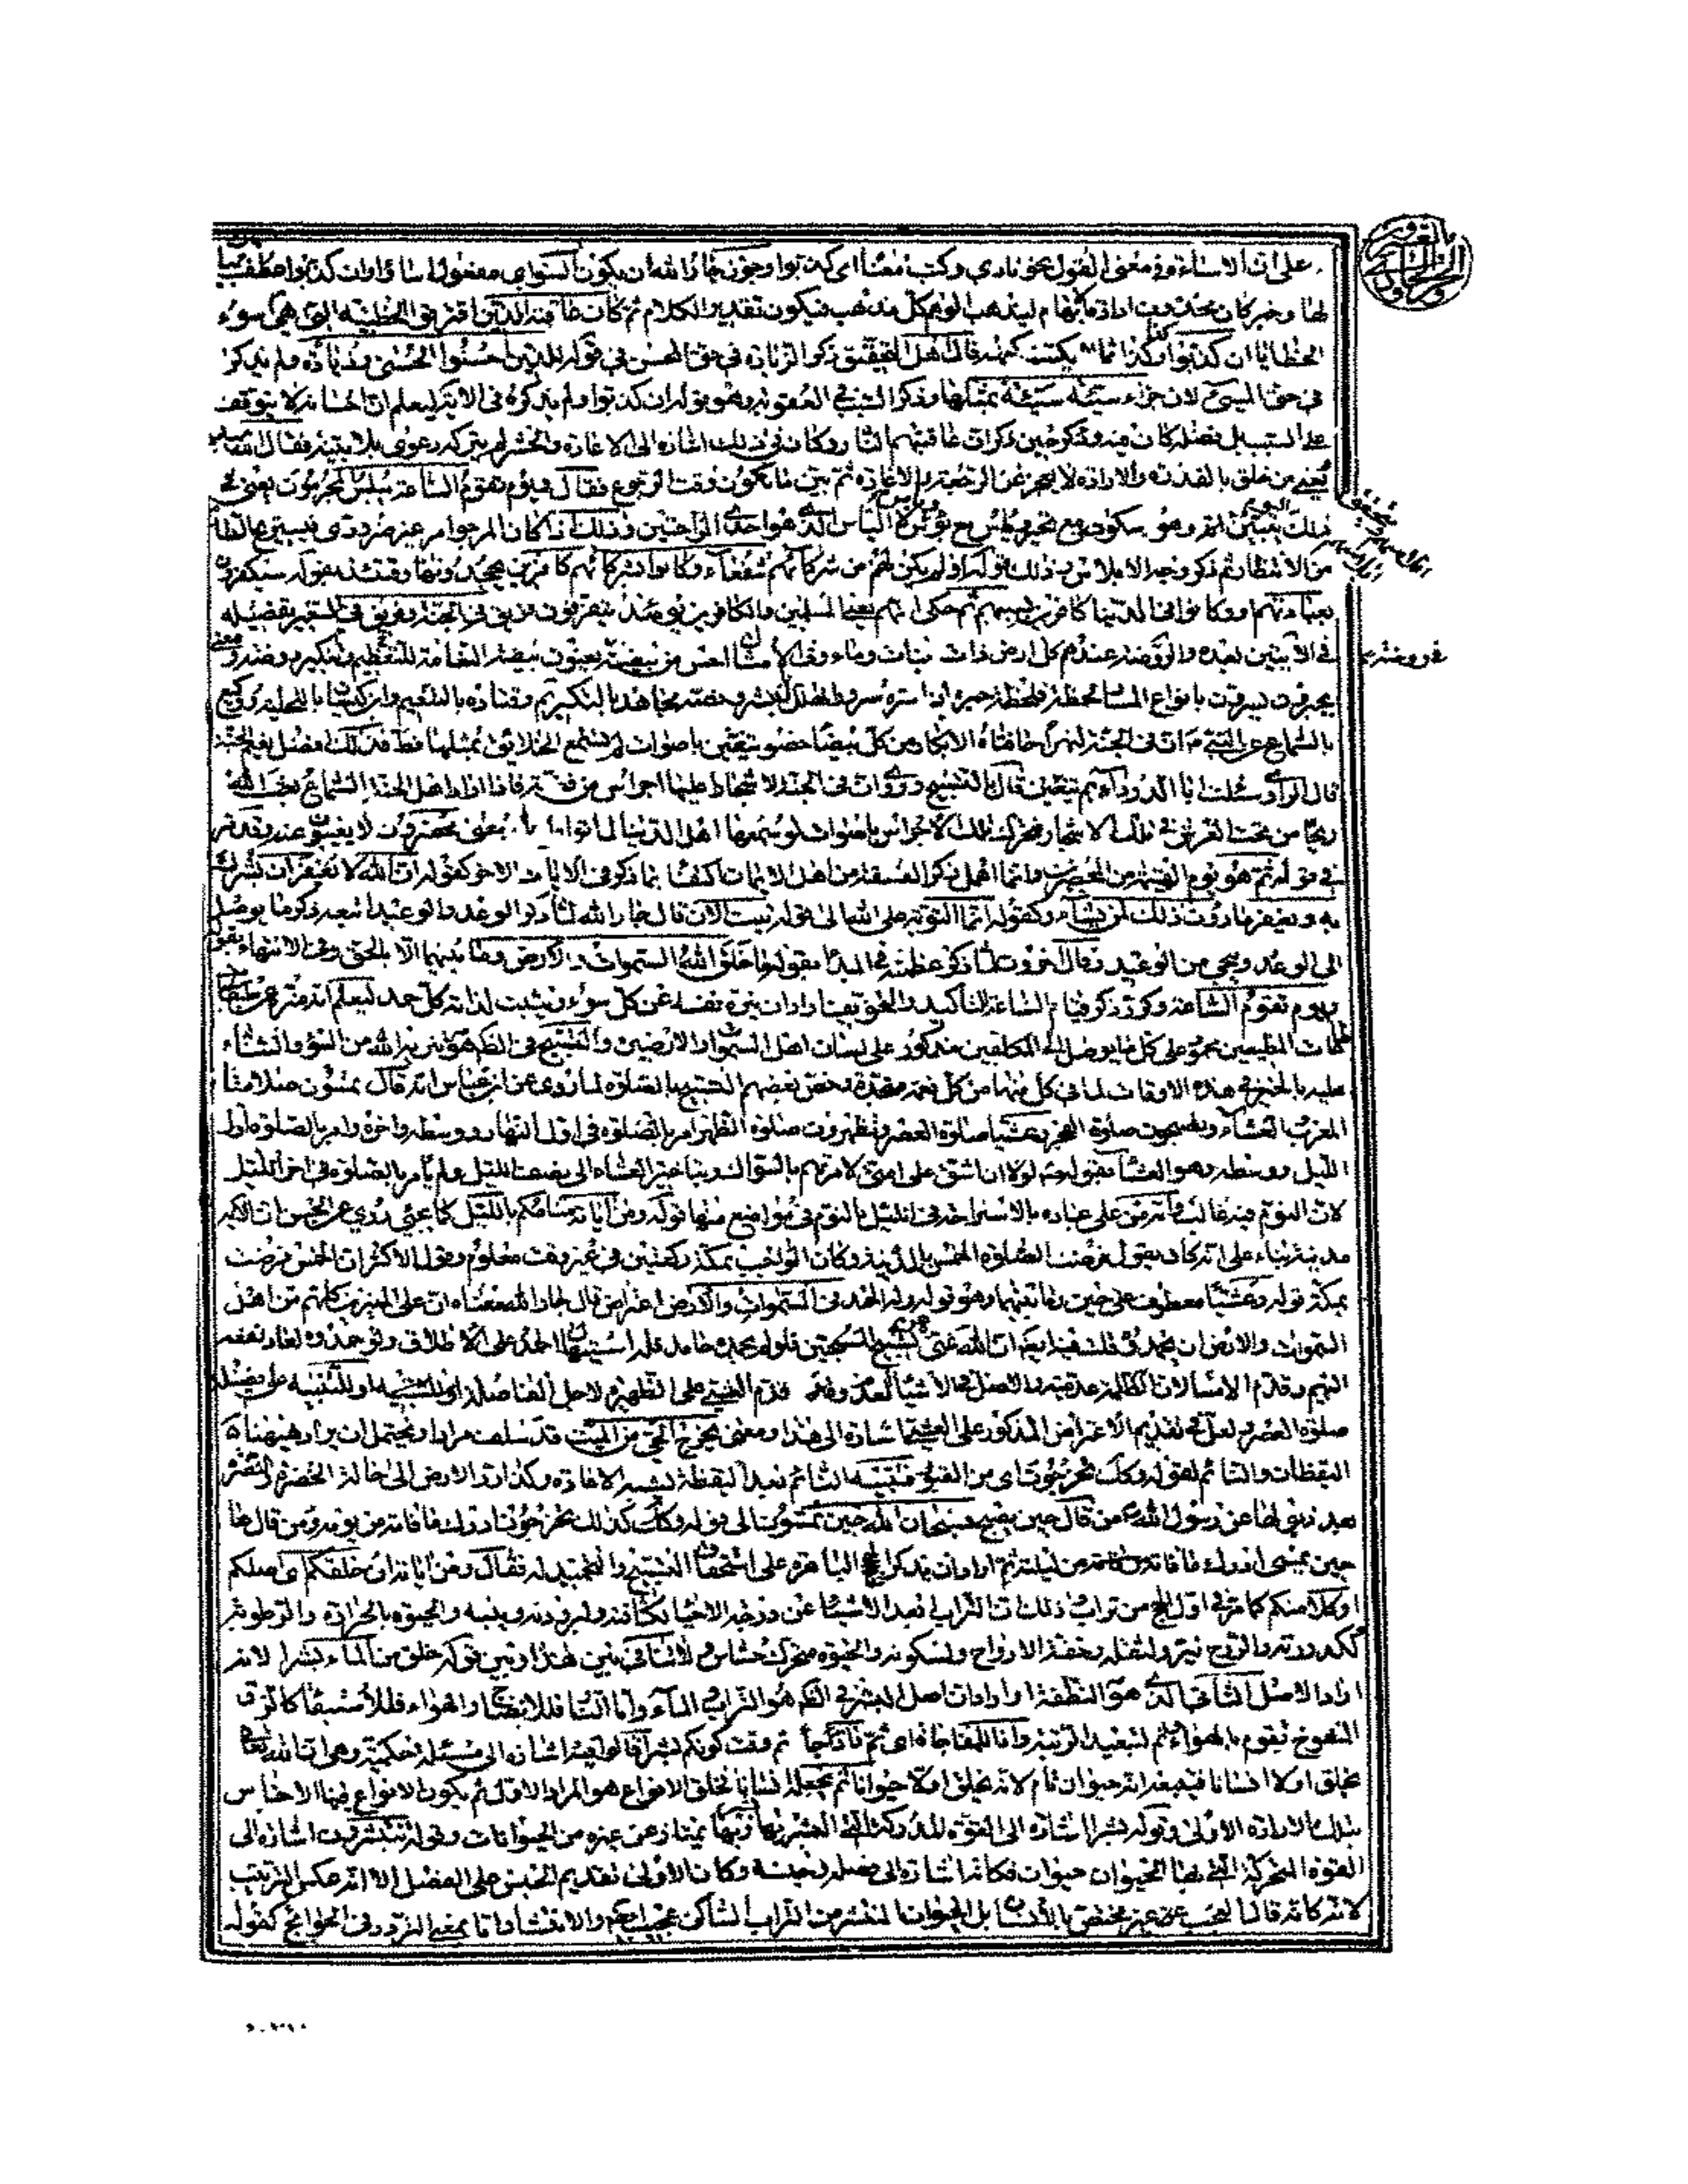 على ان الاساءة في معنى القول نحو نادى وكتب معناه اى كذبوا وجوز جار الله ان يكون السواى مفعول اساؤا وان كذبوا عطف بيان
لها وخبر كان محذوف ارادة الابهام ليذهب الوهم كل مذهب فيكون تقدير الكلام ثم كان عاقبة الذين اقترفوا الخطيئة التى هى سوء
الخطايا ان كذبوا وكذا قال اهل التحقيق ذكر الزيادة في حق المحسن في قوله للذين احسنوا الحسنى وزيادة ولم يذكر
في حق المسىء لان جزاء سيئة سيئة بمثلها وذكر السبب في العقوبة وهو قوله ان كذبوا ولم يذكره في الآية ليعلم ان احسانه لا يتوقف
على السبب بل فضله كان فيه وقد حين ذكر ان عاقبتهما النار وكان في ذلك اشارة الى الاعادة والحشر لم يتركه دعوى بلا بينة فقال الله
يعنى من خلق بالقدرة والارادة لا يعجز عن الرجعة والاعادة ثم بين ما يكون وقت الرجوع فقال ويوم تقوم الساعة يبلس المجرمون يعنى في
ذلك اليوم وهو سكون مع تحير ويأس الياس الذى هو احدى الراحتين وذلك اذا كان المرجو امر غير ضرورى فيستريح الطالب
من الانتظار ثم ذكر وجه الابلاس بعد ذلك بقوله ولم يكن لهم من شركائهم شفعاء وكانوا بشركائهم كافرين يجحدونها وقتئذ كقوله سيكفرون
بعبادتهم او وكانوا في الدنيا كافرين بسببهم ثم حكى انهم يعنى المسلمين والكافرين يومئذ يتفرقون فريق في الجنة وفريق في السعير تفصيله
في الآيتين بعده والروضة عندهم كل ارض ذات نبات وماء وفي الامثال احسن من بيضة في روضة يعنون بيضة النعامة للتعظيم والتنكير ومعنى
يحبرون يسرون بانواع المسار لحظة فلحظة حبره اذا سره سرورا تهلل له وجهه وخصه مجاهد بالتكريم وقتادة بالتنعيم وابن كيسان بالتحلية ووكيع
بالسماع عن النبي ان في الجنة لنهرا حافتاه الابكار من كل بيضاء خوصانية يتغنين باصوات لم يسمع الخلائق بمثلها قط فذلك افضل نعيم الجنة
قال الراوى سئلت ابا الدرداء بم يتغنين قال بالتسبيح وروى ان في الجنة لاشجارا عليها اجراس من فضة فاذا اراد اهل الجنة السماع بعث الله
ريحا من تحت العرش في تلك الاشجار فتحرك تلك الاجراس باصوات لو سمعها اهل الدنيا لماتوا طربا. ومعنى محضرون لا يغيبون عنه وقد مر
في قوله ثم هو يوم القيمة من المحضرين وانما اهمل ذكر الفسقة من اهل الايمان اكتفاء بما ذكر في الآيات الاخر كقوله ان الله لا يغفر ان يشرك
به ويغفر ما دون ذلك لمن يشاء وكقوله انما التوبة على الله الى قوله تبت الآن قال جار الله لما ذكر الوعد والوعيد اتبعه ذكر ما يوصل
الى الوعد وينجى من الوعيد وقال آخرون لما ذكر عظمته في المبدأ بقوله ما خلق الله السموات والارض وما بينهما الا بالحق وفي الانتهاء بقوله
ويوم تقوم الساعة وكرر ذكر قيام الساعة للتأكيد والتخويف اراد ان ينزه نفسه عن كل سوء ويثبت لذاته كل حمد ليعلم انه منزه عن
طاعات المطيعين محمود على كل ما يوصل الى المكلفين مذكور على لسان اهل السموات والارضين والتسبيح في الظهر هو تنزيه الله من السوء والثناء
عليه بالخير في هذه الاوقات لما في كل منها من كل نعمة مجددة وخص بعضهم التسبيح بالصلوة لما روى عن ابن عباس انه قال تمسون صلاتا
المغرب والعشاء وتصبحون صلوة الفجر وعشيا صلوة العصر وتظهرون صلوة الظهر امر بالصلوة في اول النهار ووسطه وآخره وامر بالصلوة اول
الليل ووسطه وهو العشاء بقوله لولا ان اشق على امتى لامرتهم بالسواك وبتأخير العشاء الى نصف الليل ولم يأمر بالصلوة في آخر الليل
لان النوم فيه غالب والله من على عباده بالاستراحة في الليل بالنوم في مواضع منها قوله ومن آياته منامكم بالليل كما يجئ روى عن الحسن ان الآية
مدنية بناء على انه كان يقول فرضت الصلوة الخمس بالمدينة وكان الواجب بمكة ركعتين في غير وقت معلوم وقول الاكثر ان الخمس فرضت
بمكة قوله وعشيا معطوف على حين وما بينهما وهو قوله وله الحمد في السموات والارض اعتراض قال جار الله معناه ان على المميزين كلهم من اهل
السموات والارض ان يحمدوه قلت فيه ان الله غنى عن تسبيح المسبحين فلو لم يحمده حامد فله استحقاق الحمد على الاطلاق ولو حمدوه لعاد نفعه
اليهم وقدم الامساء لان الظلمة عدمية والاصل في الاشياء العدم وقدم العشى على الظهيرة لاجل الفاصلة او للتنبيه على فضيلة
صلوة العصر ولعل في تقديم الاعتراض المذكور على العشى اشارة الى هذا ومعنى يخرج الحى من الميت قد سلف مرارا ويحتمل ان يراد ههنا
اليقظان والنائم لقوله وكذلك تخرجون اى من القبور فتنبيه النائم بعد اليقظة يشبه الاعادة وكذا رد الارض الى حالة الخضرة والنضرة
بعد ذبولها عن رسول الله من قال حين يصبح فسبحان الله حين تمسون الى قوله وكذلك تخرجون ادرك ما فاته من يومه ومن قالها
حين يمسى ادرك ما فاته من ليلته ثم اراد ان يذكر الحجج الباهرة على استحقاق التسبيح والتحميد له فقال ومن آياته ان خلقكم اى اصلكم
او كلا منكم كما مر في اول الحج من تراب وذلك ان التراب ابعد الاشياء عن درجة الاحياء لكثافته ولبرودته ويبسه والحيوة بالحرارة والرطوبة
لكدورته والروح نير ولثقله وخفة الارواح ولسكونه والحيوة متحرك حساس وبين هذا وبين قوله خلق من الماء بشرا لانه
اراد الاصل الثانى الذى هو النطفة او اراد ان اصل البشر هو التراب والماء واما النار فللانضاج والهواء فللاستبقاء كالزق
المنفوخ يقوم بالهواء وثم لتبعيد الرتبة واذا للمفاجأة اى ثم فاجأ تم وقت كونكم بشرا قالوا فيه اشارة الى مسئلة حكمية وهى ان الله تعالى
يخلق اولا انسانا فيتبعه انه حيوان نام لا انه يخلق اولا حيوانا ثم يجعله انسانا فخلق الانواع هو المراد الاول ثم يكون الانواع فيها الاجناس
بتلك الارادة الاولى وقوله بشرا اشارة الى القوة المدركة التى البشر بها يمتاز عن غيره من الحيوانات وقوله تنتشرون اشارة الى
القوة المحركة التى بها الحيوان حيوان فكانه اشارة الى فصله وجنسه وكان الاولى تقديم الجنس على الفصل الا انه عكس الترتيب
لانه كانه قال العجب غير مختص بالانسان بل الحيوان المنتشر من التراب الساكن عجيب والانتشار اما بمعنى التردد في الحوائج كقوله